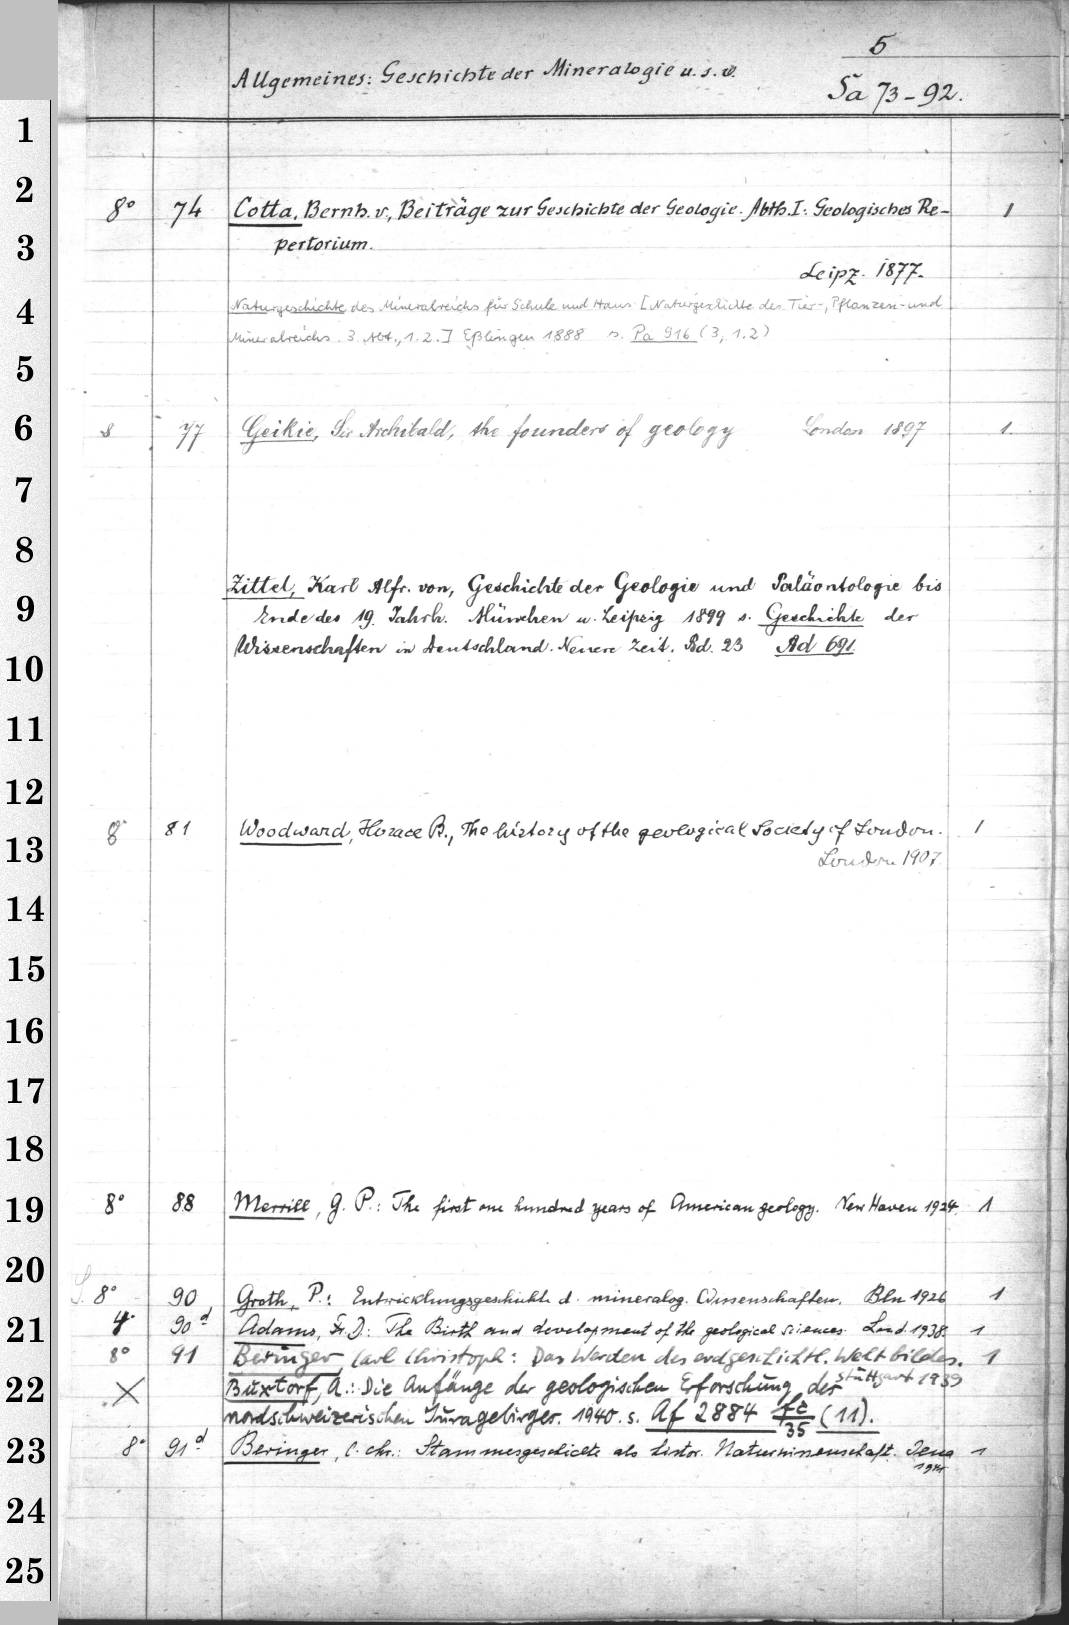 5
Allgemeines: Geschichte der Mineralogie u. s. w.
Sa 73-92.
1
2
8° 74 Cotta, Bernh. v., Beiträge zur Geschichte der Geologie. Abth. I: Geologisches Re- 1
3
pertorium.
Leipz. 1877.
4
Naturgeschichte des Mineralreichs für Schule und Haus [Naturgeschichte des Tier-, Pflanzen- und
Mineralreichs. 3. Abt., 1.2.] Eßlingen 1888 s. Pa 916 (3, 1.2)
5
6
8 77 Geikie, Sir Archibald, the founders of geology London 1897 1.
7
8
Zittel, Karl Alfr. von, Geschichte der Geologie und Paläontologie bis
9
Ende des 19. Jahrh. München u. Leipzig 1899 s. Geschichte der
Wissenschaften in Deutschland. Neuere Zeit. Bd. 23 Ad 691
10
11
12
8° 81 Woodward, Horace B., The history of the geological Society of London. 1
13
London 1907.
14
15
16
17
18
19
8° 88 Merrill, G. P.: The first one hundred years of American geology. New Haven 1924. 1
20
8° 90 Groth, P.: Entwicklungsgeschichte d. mineralog. Wissenschaften. Bln 1926 1
21
4° 90 d Adams, Fr. D.: The Birth and development of the geological sciences. Lond. 1938. 1
8° 91 Beringer, Carl Christoph: Das Werden des erdgeschichtl. Weltbildes. 1
Stuttgart 1939
22
Buxtorf, A.: Die Anfänge der geologischen Erforschung der
nordschweizerischen Juragebirges. 1940. s. Af 2884 fc/35 (11).
23
8° 91 d Beringer, C. Chr.: Stammesgeschichte als histor. Naturwissenschaft. Jena 1
1941
24
25